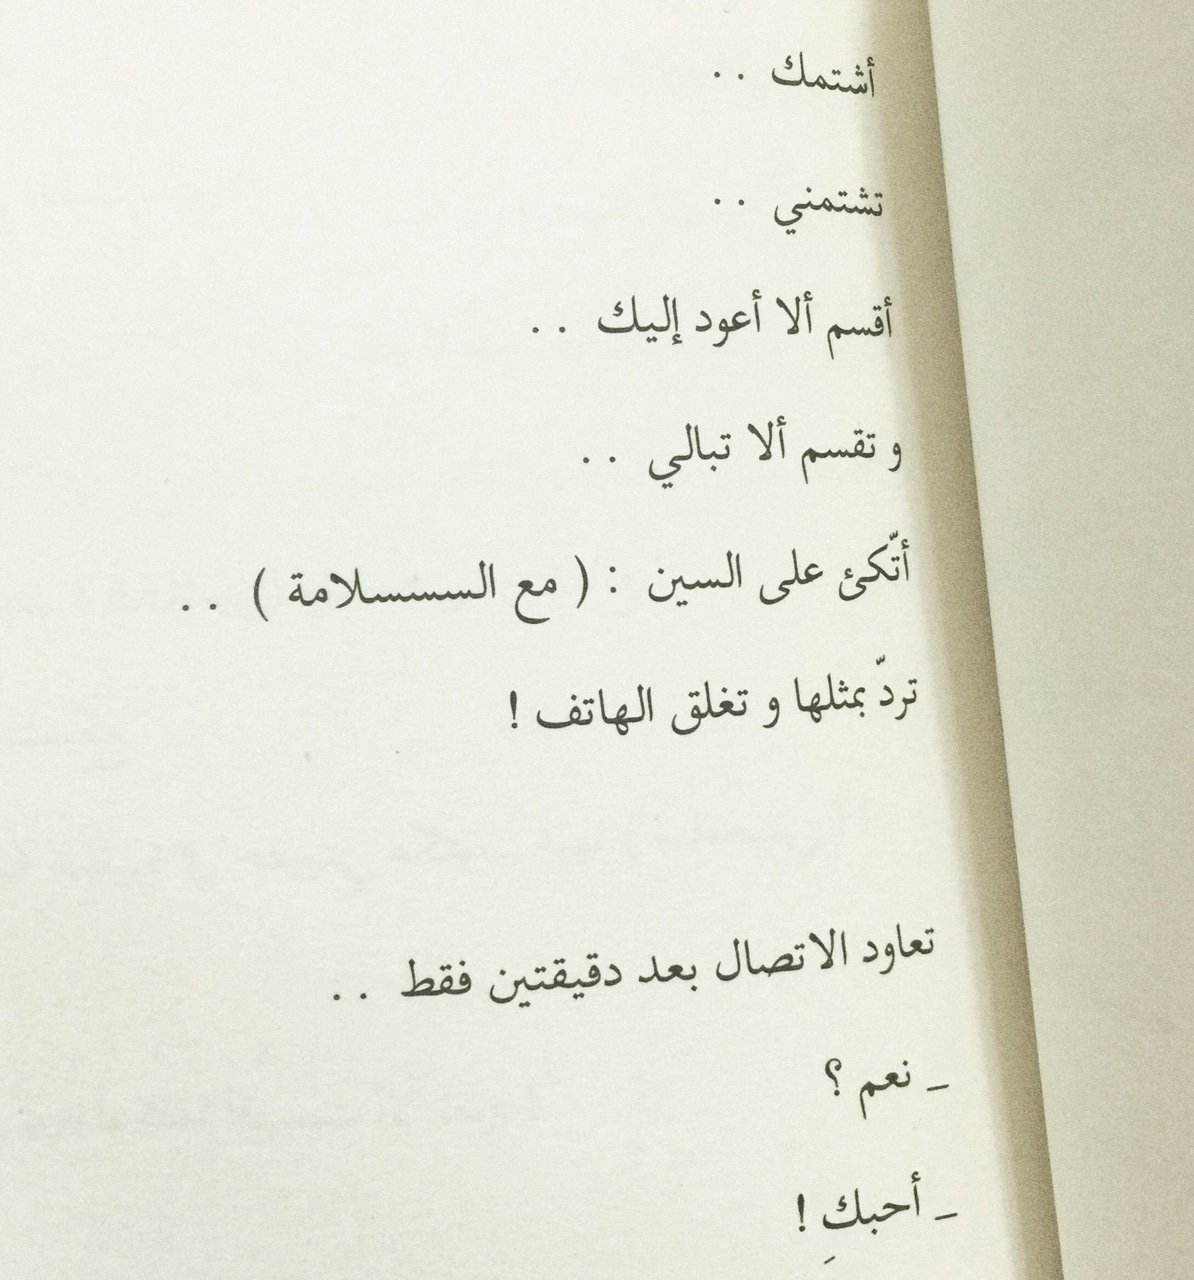 أشتمك . .
تشتمني . .
أقسم ألا أعود إليك . .
و تقسم ألا تبالي . .
أتّكئ على السين : ( مع السسسلامة ) . .
تردّ بمثلها و تغلق الهاتف !
تعاود الاتصال بعد دقيقتين فقط . .
_ نعم ؟
_ أحبكِ !